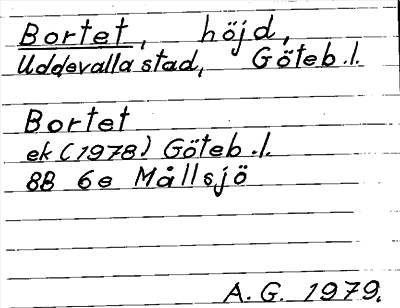 Bortet, höjd,
Uddevalla stad, Göteb.l.
Bortet
ek (1978) Göteb.l.
8B 6e Mållsjö
A.G. 1979.